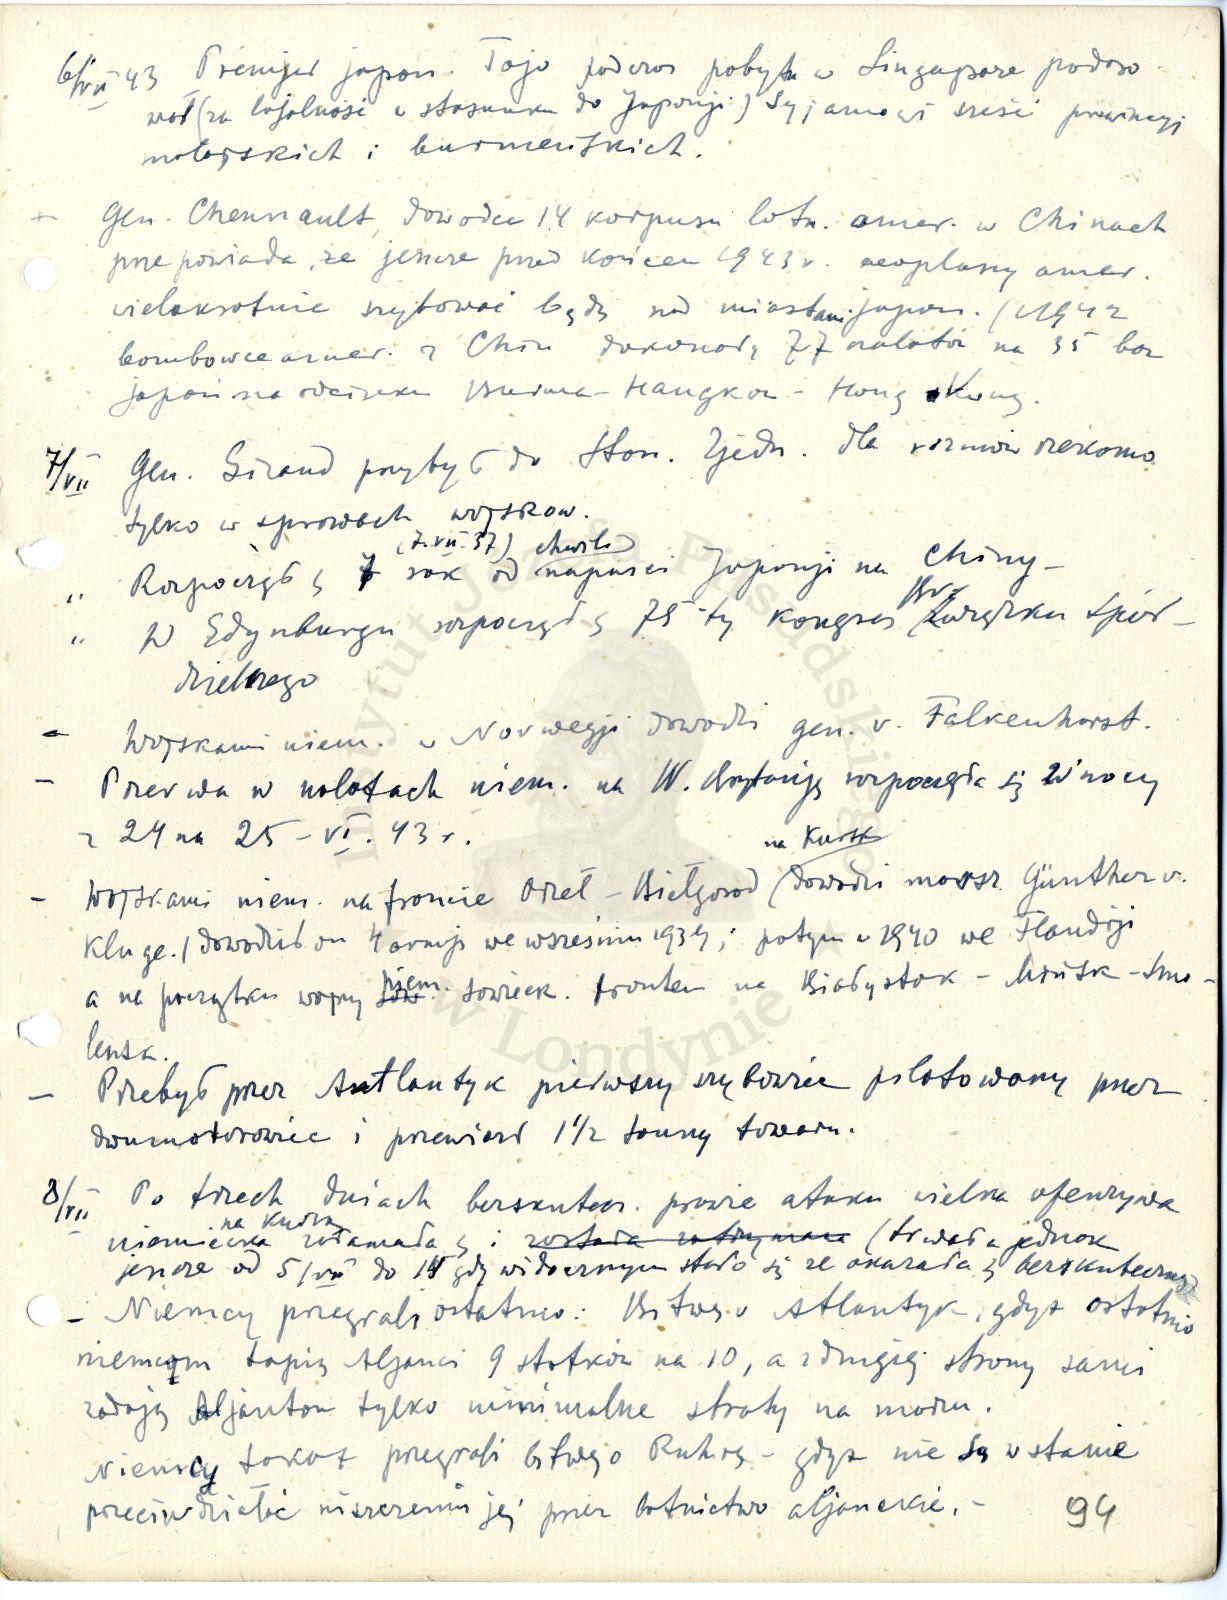 6/VII 43 Premjer japon. Tojo podczas pobytu w Singapore podaro-
wał (za lojalność w stosunku do Japonji) Syjamowi sześć prowincyj
malajskich i burmeńskich.
Gen. Chennault, dowódca 14 korpusu lotn. amer. w Chinach
przepowiada, że jeszcze przed końcem 1943 r. aeoplany amer.
wielokrotnie szybować będą nad miastami japon. / w 1942
bombowce amer. z Chin dokonały 77 nalotów na 35 baz
japoń na odcinku Burma - Hangkou - Hong Kong.
7/VII Gen. Giraud przybył do Stan. Zjedn. dla rozmów rzekomo
tylko w sprawach wojskow.
(7.VII.37) chwili
" Rozpoczął się 7 rok od napaści Japonji na Chiny -
" W Edynburgu rozpoczął się 75-ty kongres Bryt. Związku Spół-
dzielczego
- Wojskami niem. w Norwegji dowodzi gen. v. Falkenhorst.
- Przerwa w nalotach niem. na W. Brytanję rozpoczęła się w nocy
z 24 na 25 - VI. 43 r.
na Kursk
- Wojskami niem. na froncie Orzeł - Biełgorod (dowodzi marsz. Günther v.
Kluge. / dowodził on 4 armji we wrześniu 1939; potym w 1940 we Flandrji
a na początku wojny niem. sowieck. frontem na Białystok - Mińsk - Smo-
leńsk.
- Przebył przez Atlantyk pierwszy szybowiec pilotowany przez
dwumotorowiec i przewiózł 1 1/2 tonny towaru.
8/VII Po trzech dniach bezskutecz. prawie ataku wielka ofenzywa
na Kursk
niemiecka załamała się i została zatrzymana (trwała jednak
jeszcze od 5/VII do 14 gdy widocznym stało się że okazała się bezskuteczną
- Niemcy przegrali ostatnio: Bitwę o Atlantyk, gdyż ostatnio
niemcom topią Aljanci 9 statków na 10, a z drugiej strony sami
zadają Aljantom tylko minimalne straty na morzu.
Niemcy także przegrali bitwę o Ruhrę - gdyż nie są w stanie
przeciwdziałać niszczeniu jej przez lotnictwo aljanckie. -
94
Instytut Józefa Piłsudskiego
w Londynie